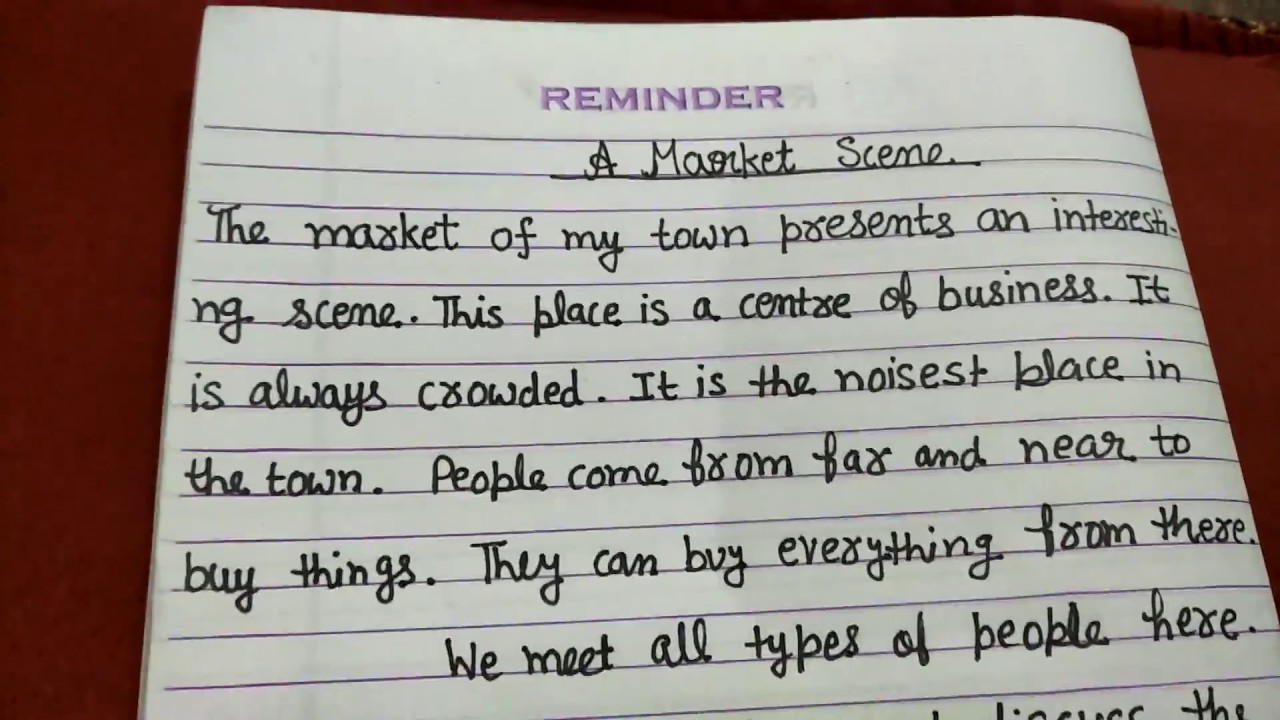 REMINDER
A Market Scene.
The market of my town presents an interesti-
ng scene. This place is a centre of business. It
is always crowded. It is the noisest place in
the town. People come from far and near to
buy things. They can buy everything from there.
We meet all types of people here.
discuss the